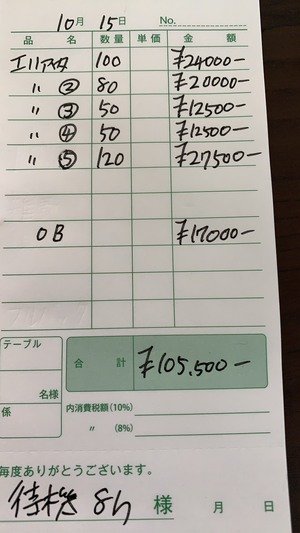 10月 15日 No.
品名 数量 単価 金額
100 ¥24000-
〃 ② 80 ¥20000-
〃 ③ 50 ¥12500-
〃 ④ 50 ¥12500-
〃 ⑤ 120 ¥27500-
OB ¥17000-
テーブル
名様
係
合計 ¥105,500-
内消費税額(10%)
〃 (8%)
毎度ありがとうございます。
待機 8h 様 月 日